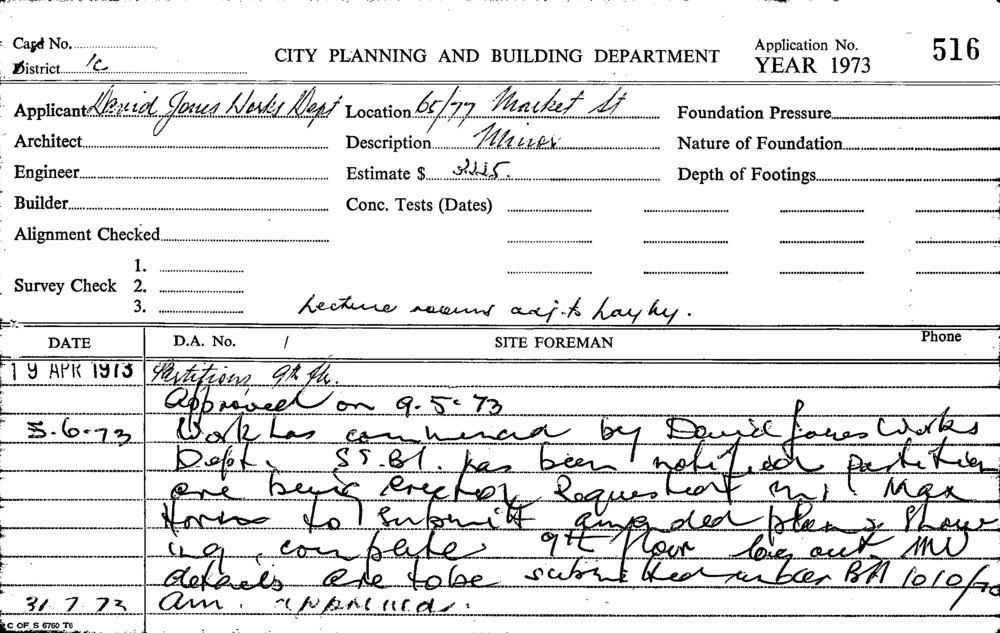 Card No.
District 1c
CITY PLANNING AND BUILDING DEPARTMENT
Application No. 516
YEAR 1973
Applicant David Jones Works Dept Location 65/77 Market St Foundation Pressure
Architect Description Minor Nature of Foundation
Engineer Estimate $ Depth of Footings
Builder Conc. Tests (Dates)
Alignment Checked
Survey Check 1.
2.
3.
Lecture rooms adj. to Layby.
DATE D.A. No. / SITE FOREMAN Phone
19 APR 1973 Partitions 9th flr.
Approved on 9-5-73
5-6-73 Work has commenced by David Jones Works
Dept. has been notified partition
are being erected Requested Mr. Max
to submit amended plans show
ing complete 9th floor lay out. MV
details are to be submitted under BA 1010/70
31.7.73 Am. approved.
C OF S 6760 T6